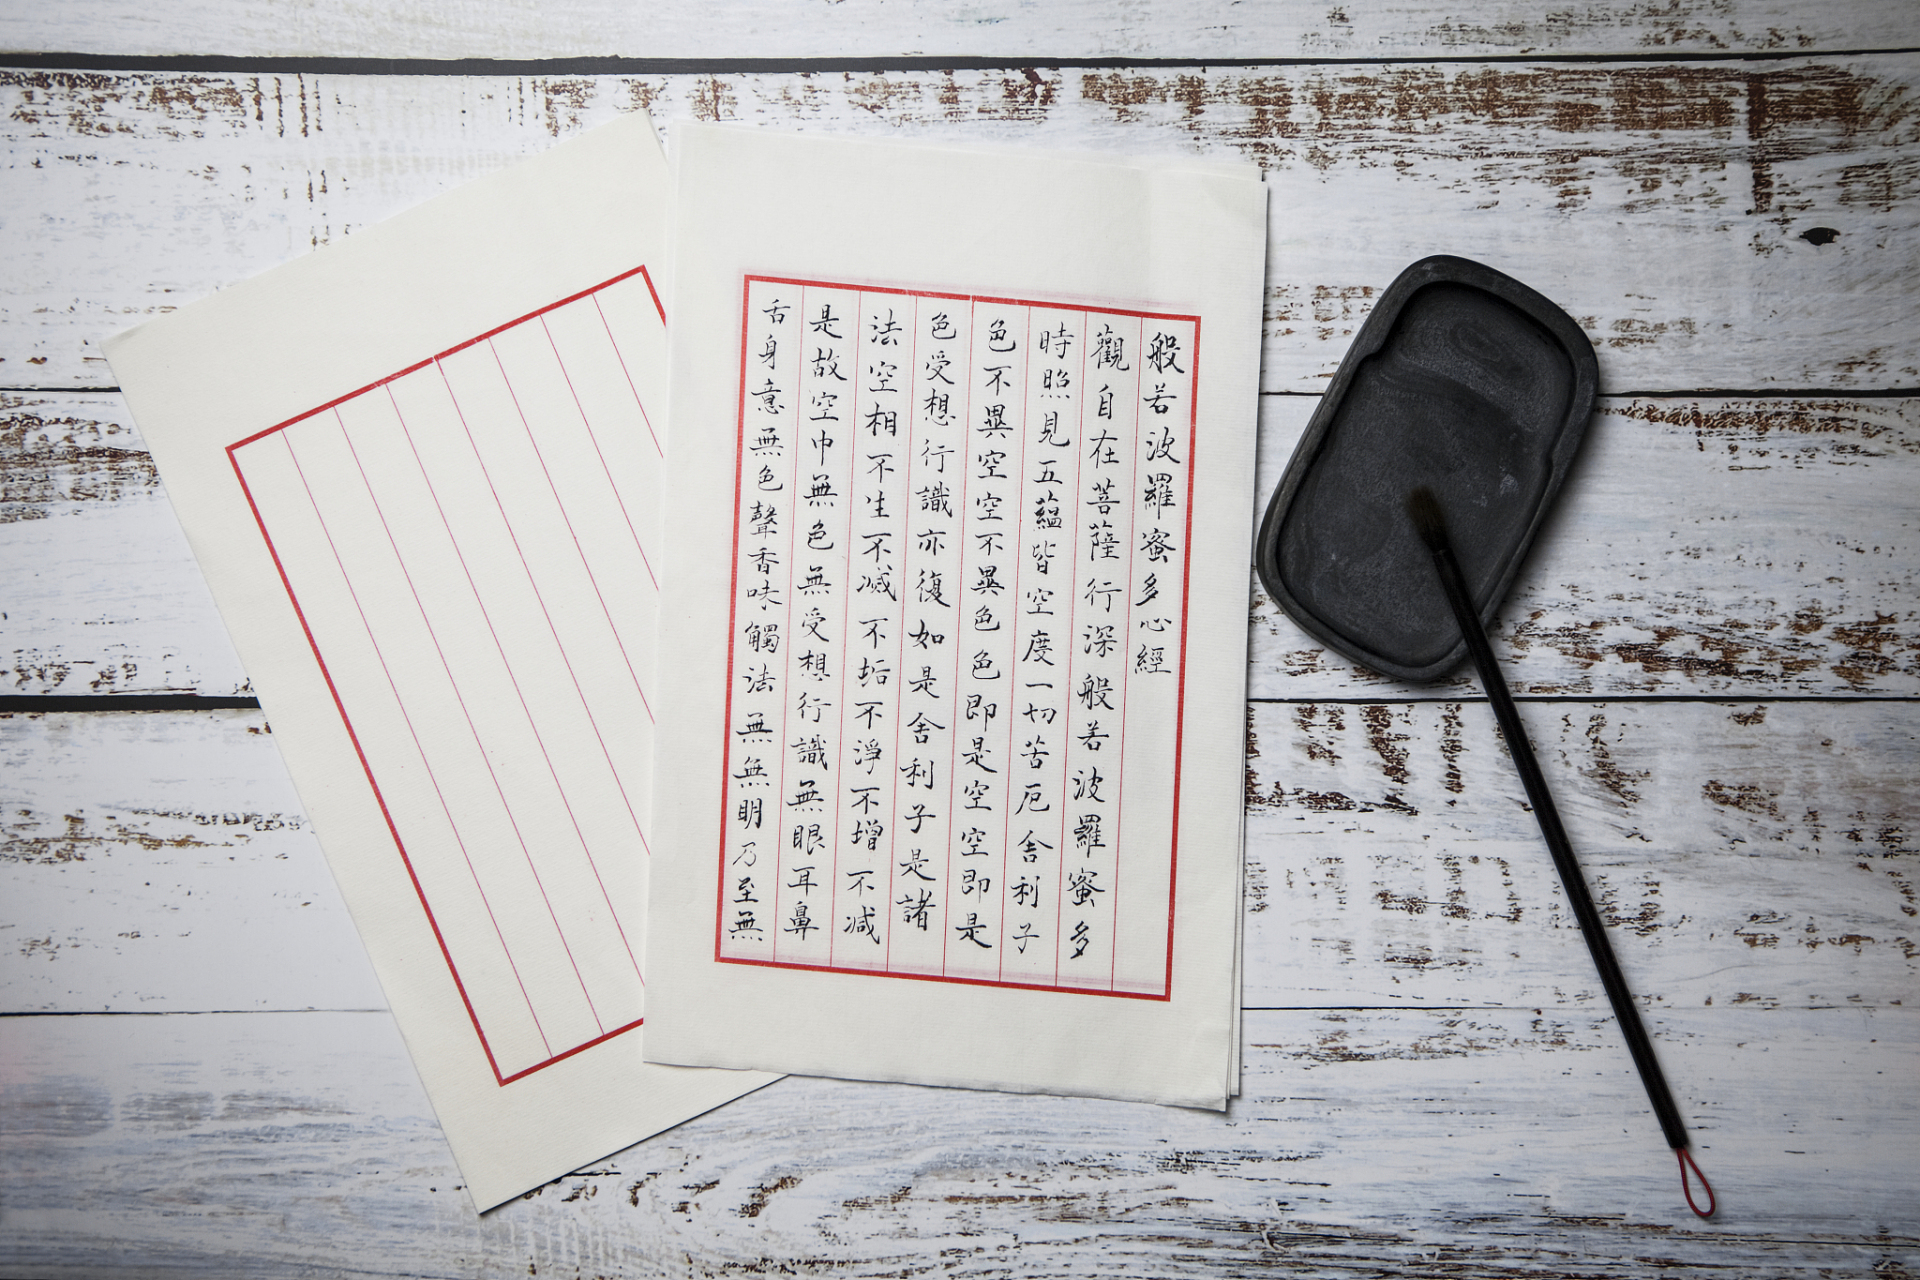 般若波羅蜜多心經
觀自在菩薩行深般若波羅蜜多
時照見五蘊皆空度一切苦厄舍利子
色不異空空不異色色即是空空即是
色受想行識亦復如是舍利子是諸
法空相不生不滅不垢不淨不增不减
是故空中無色無受想行識無眼耳鼻
舌身意無色聲香味觸法無無明乃至無